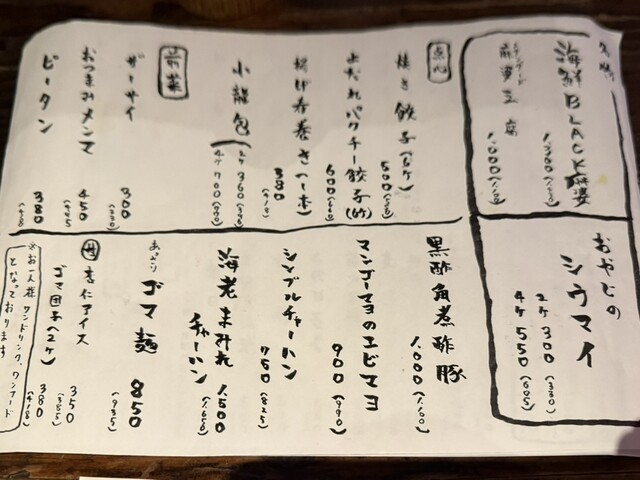 名物
海鮮BLACK麻婆
1.300(1.430)
スタンダード
麻婆豆腐
1.000(1.100)
おやじの
シウマイ
2ヶ 300(330)
4ヶ 550(605)
点心
焼き餃子(5ヶ)
500(550)
よだれパクチー餃子(5ケ)
600(660)
揚げ春巻き(一本)
380
(418)
小龍包
2ヶ 360(396)
4ヶ 700(770)
前菜
ザーサイ
300
(330)
おつまみメンマ
450
(495)
ピータン
380
(418)
黒酢角煮酢豚
1.000(1.100)
マンゴーマヨのエビマヨ
900(990)
シンプルチャーハン
750(825)
海老まみれ
チャーハン
1.500
(1.650)
あっさり
ゴマ麺
850
(935)
甘
杏仁アイス
350
(385)
ゴマ団子(2ヶ)
380
(418)
※お一人様 ワンドリンク、ワンフード
となっております